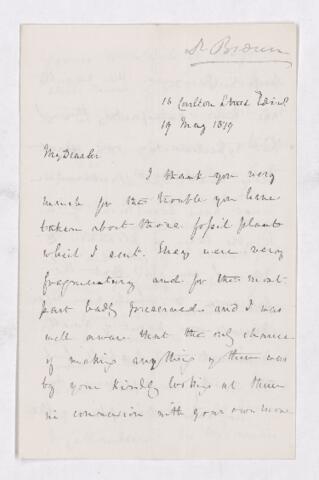 Dr Brown
16 Carlton Street Edinr
19 May 1879
My Dear Sir
I thank you very
much for the trouble you have
taken about those fossil plants
which I sent. They were very
fragmentary and for the most
part badly preserved and I was
well aware that the only chance
of making anything of them was
by your kindly looking at them
in connexion with your own more